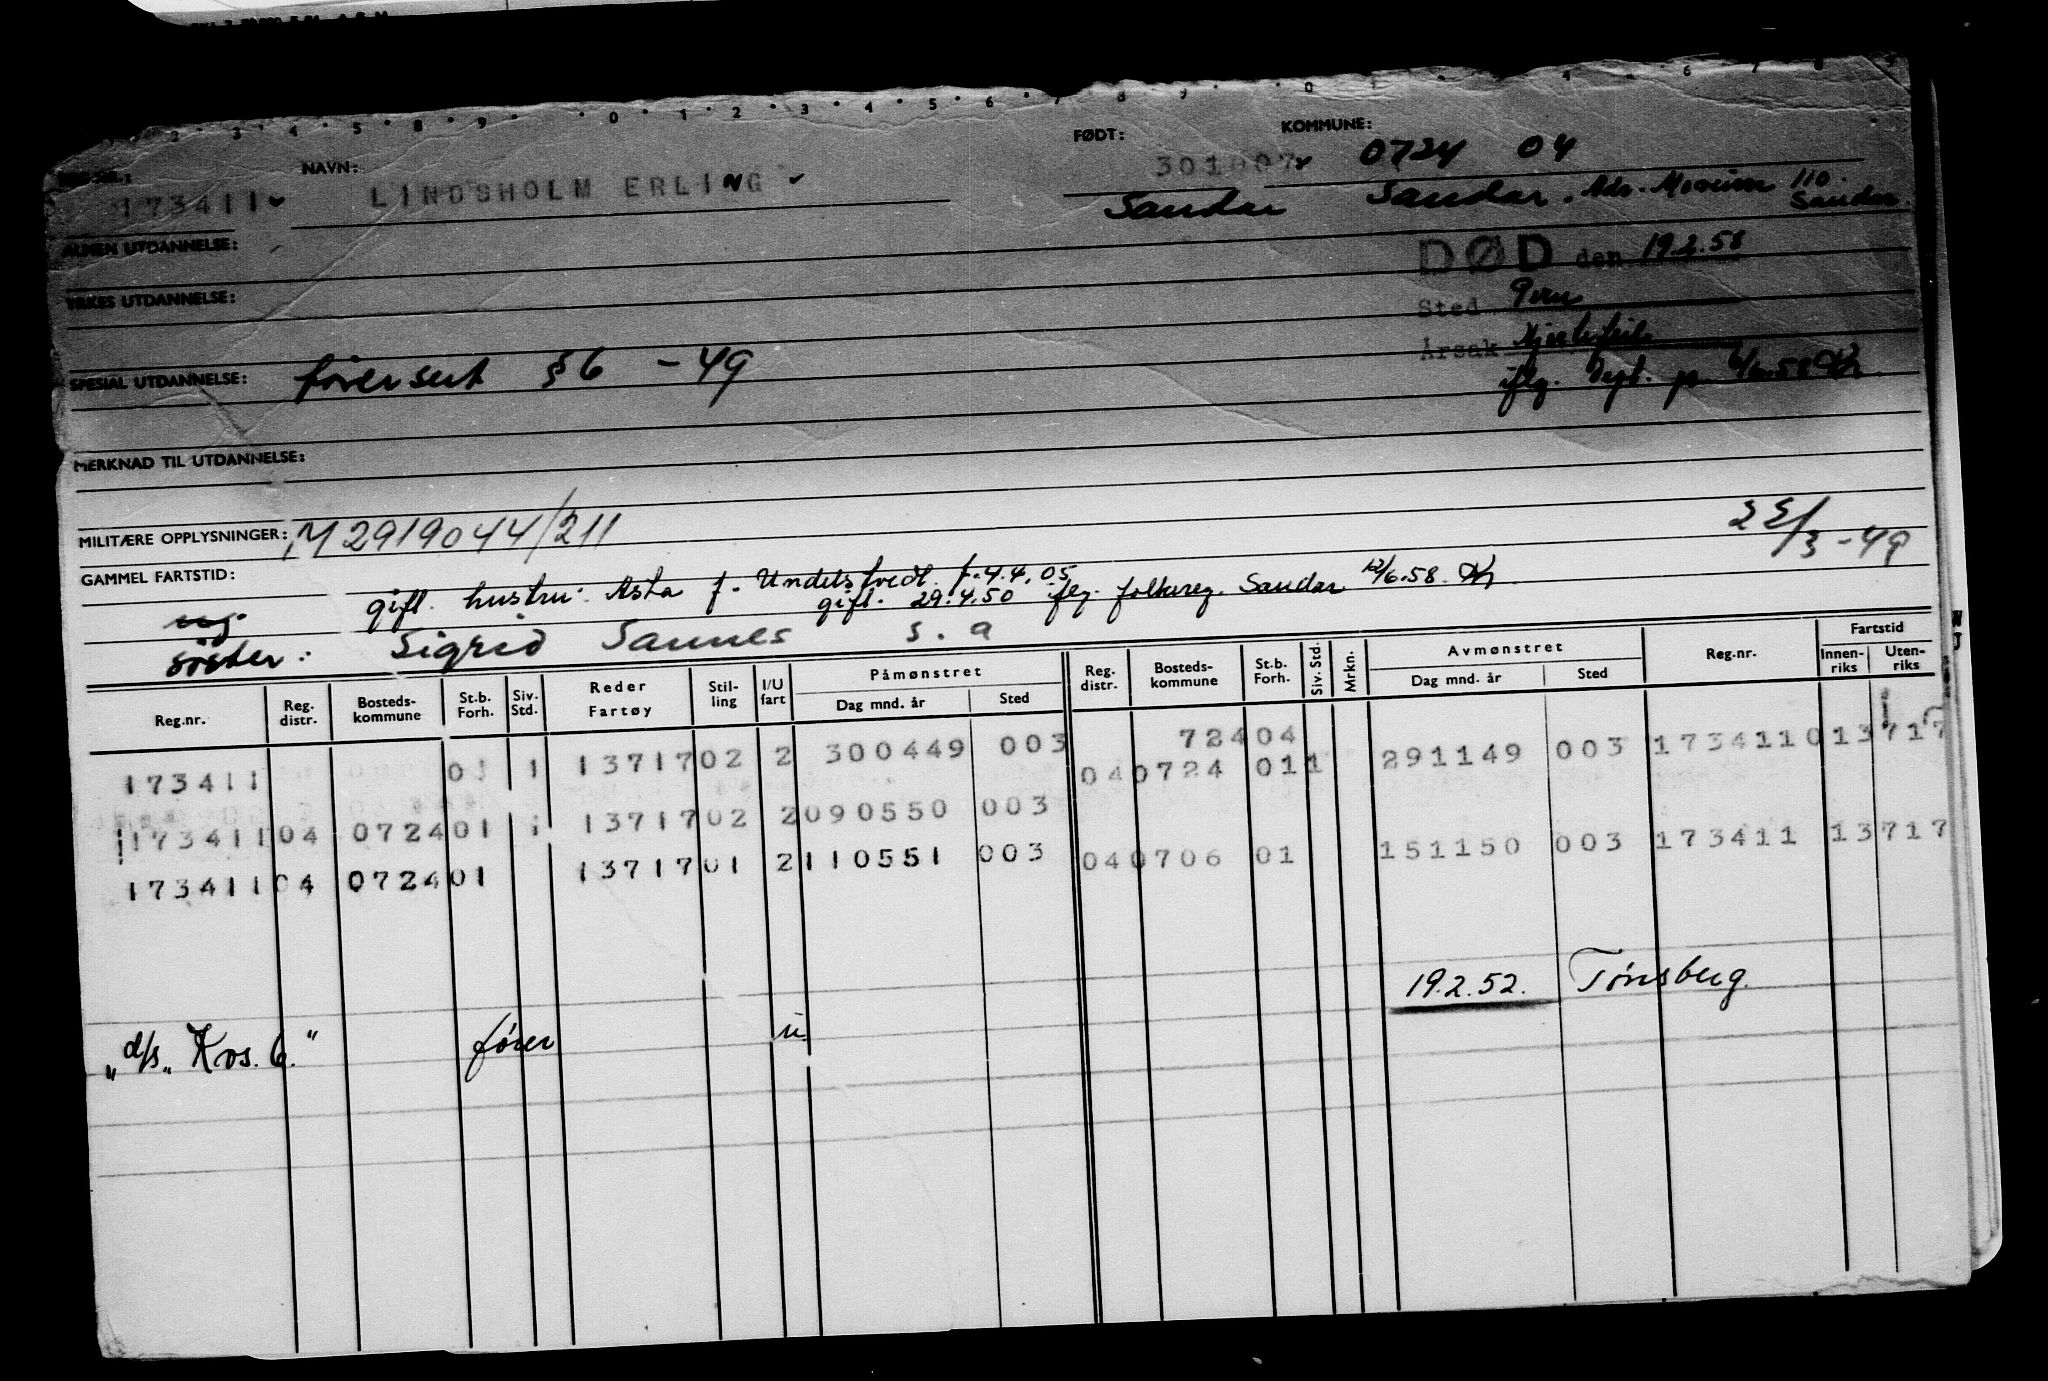 2 · 3 · 4 · 5 · 8 · 9 · · 0 · 1 · 2 · 3 · 4 · 5 · 6 · 7 · 8 · 9 · · 0 · 4 · 6 7 8 9
NAVN: FØDT: KOMMUNE:
173411 LINDSHOLM ERLING 301007 0724 04
Sandar Sandar. Adr. 110. Sandar
ALMEN UTDANNELSE: DØD den 19.2.58
YRKES UTDANNELSE: Sted Peru
SPESIAL UTDANNELSE: førersert § 6 - 49 Årsak Hjertefeil
iflg. Dept. 58 Kr.
MERKNAD TIL UTDANNELSE:
MILITÆRE OPPLYSNINGER: M 2919044/211 22/3-49
GAMMEL FARTSTID: gift. hustru: Asta f. f. 4.4.05
ug. gift. 29.4.50 flg. folkereg. Sandar 12/6.58. Kr.
søster: Sigrid Sannes s.a
Reg.nr. Reg. distr. Bosteds- kommune St.b. Forh. Siv. Std. Reder Fartøy Stil- ling I/U fart Påmønstret Dag mnd. år Sted Reg. distr. Bosteds- kommune St.b. Forh. Siv. Std. Mrkn. Avmønstret Dag mnd. år Sted Reg.nr. Fartstid Innen- riks Uten- riks
72404
173411 01 1 13717 02 2 300449 003 04 0724 01 1 291149 003 173411 0 13717
173411 04 0724 01 1 13717 02 2 090550 003
173411 04 0724 01 13717 01 2 110551 003 04 0706 01 151150 003 173411 13717
19.2.52. Tønsberg.
"d/s „Kos. 6." fører u.